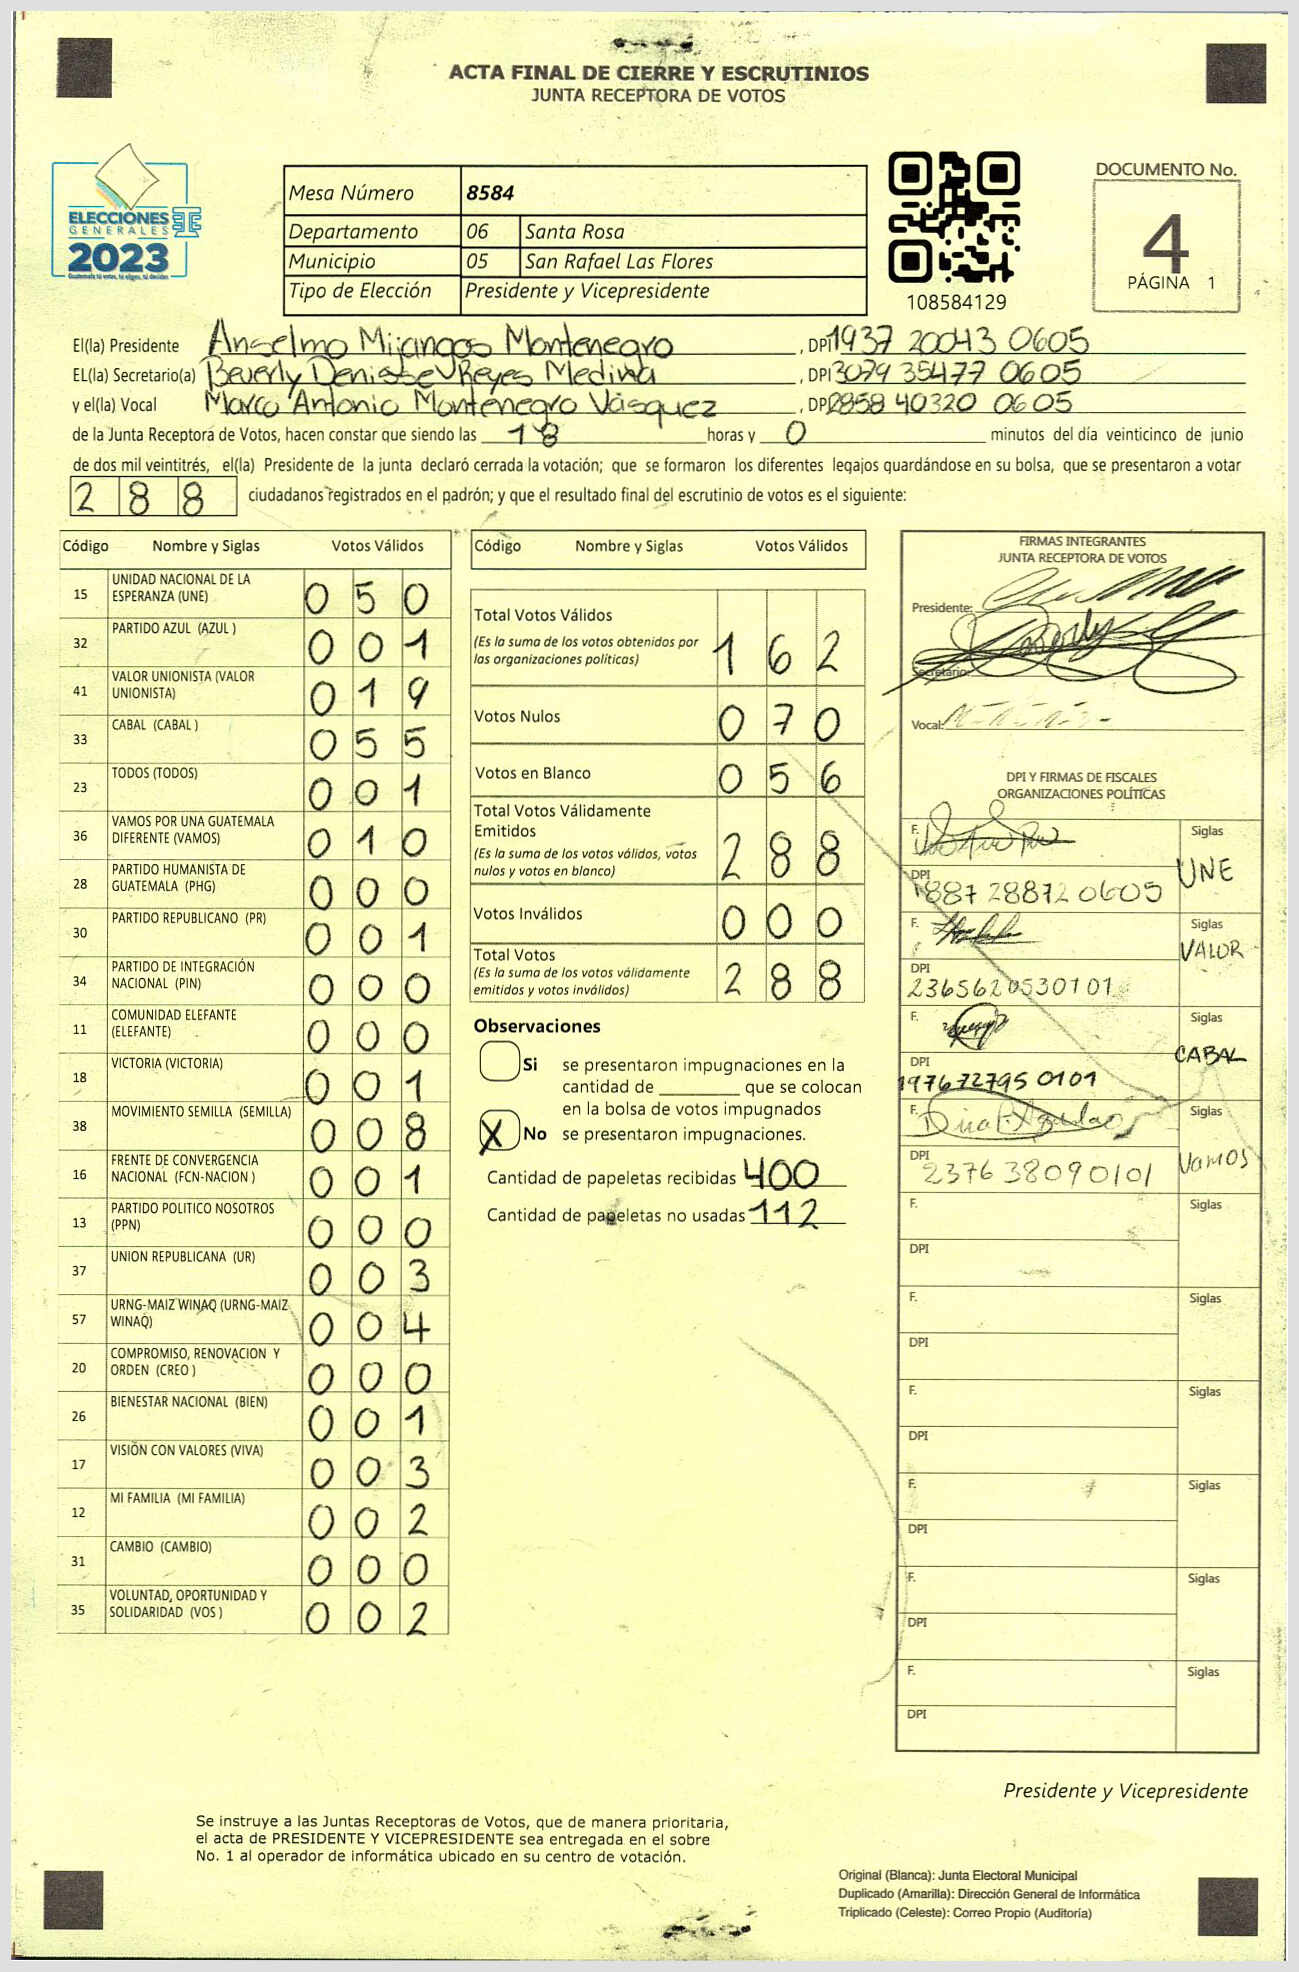 ACTA FINAL DE CIERRE Y ESCRUTINIOS
JUNTA RECEPTORA DE VOTOS
ELECCIONES
GENERALES
2023
Guatemala tú votas, tú eliges, tú decides
Mesa Número 8584
Departamento 06 Santa Rosa
Municipio 05 San Rafael Las Flores
Tipo de Elección Presidente y Vicepresidente
108584129
DOCUMENTO No.
4
PÁGINA 1
El(la) Presidente Anselmo Mijangos Montenegro, DPI 1937 20043 0605
EL(la) Secretario(a) Beverly Denisse Reyes Medina, DPI 3079 35477 0605
y el(la) Vocal Marco Antonio Montenegro Vásquez, DPI 2858 40320 0605
de la Junta Receptora de Votos, hacen constar que siendo las 18 horas y 0 minutos del día veinticinco de junio
de dos mil veintitrés, el(la) Presidente de la junta declaró cerrada la votación; que se formaron los diferentes legajos guardándose en su bolsa, que se presentaron a votar
288 ciudadanos registrados en el padrón; y que el resultado final del escrutinio de votos es el siguiente:
Código Nombre y Siglas Votos Válidos
15 UNIDAD NACIONAL DE LA ESPERANZA (UNE) 050
32 PARTIDO AZUL (AZUL ) 001
41 VALOR UNIONISTA (VALOR UNIONISTA) 019
33 CABAL (CABAL ) 055
23 TODOS (TODOS) 001
36 VAMOS POR UNA GUATEMALA DIFERENTE (VAMOS) 010
28 PARTIDO HUMANISTA DE GUATEMALA (PHG) 000
30 PARTIDO REPUBLICANO (PR) 001
34 PARTIDO DE INTEGRACIÓN NACIONAL (PIN) 000
11 COMUNIDAD ELEFANTE (ELEFANTE) 000
18 VICTORIA (VICTORIA) 001
38 MOVIMIENTO SEMILLA (SEMILLA) 008
16 FRENTE DE CONVERGENCIA NACIONAL (FCN-NACION ) 001
13 PARTIDO POLITICO NOSOTROS (PPN) 000
37 UNION REPUBLICANA (UR) 003
57 URNG-MAIZ WINAQ (URNG-MAIZ WINAQ) 004
20 COMPROMISO, RENOVACION Y ORDEN (CREO ) 000
26 BIENESTAR NACIONAL (BIEN) 001
17 VISIÓN CON VALORES (VIVA) 003
12 MI FAMILIA (MI FAMILIA) 002
31 CAMBIO (CAMBIO) 000
35 VOLUNTAD, OPORTUNIDAD Y SOLIDARIDAD (VOS ) 002
Código Nombre y Siglas Votos Válidos
Total Votos Válidos 162
(Es la suma de los votos obtenidos por
las organizaciones políticas)
Votos Nulos 070
Votos en Blanco 056
Total Votos Válidamente
Emitidos 288
(Es la suma de los votos válidos, votos
nulos y votos en blanco)
Votos Inválidos 000
Total Votos 288
(Es la suma de los votos válidamente
emitidos y votos inválidos)
Observaciones
Si se presentaron impugnaciones en la
cantidad de ________ que se colocan
en la bolsa de votos impugnados
X No se presentaron impugnaciones.
Cantidad de papeletas recibidas 400
Cantidad de papeletas no usadas 112
FIRMAS INTEGRANTES
JUNTA RECEPTORA DE VOTOS
Presidente:
Secretario:
Vocal:
DPI Y FIRMAS DE FISCALES
ORGANIZACIONES POLÍTICAS
F. Siglas
UNE
DPI
1887 28872 0605
F. Siglas
VALOR
DPI
2365620530101
F. Siglas
CABAL
DPI
1976727950101
F. Siglas
VAMOS
DPI
2376 38090101
F. Siglas
DPI
F. Siglas
DPI
F. Siglas
DPI
F. Siglas
DPI
F. Siglas
DPI
F. Siglas
DPI
Presidente y Vicepresidente
Se instruye a las Juntas Receptoras de Votos, que de manera prioritaria,
el acta de PRESIDENTE Y VICEPRESIDENTE sea entregada en el sobre
No. 1 al operador de informática ubicado en su centro de votación.
Original (Blanca): Junta Electoral Municipal
Duplicado (Amarilla): Dirección General de Informática
Triplicado (Celeste): Correo Propio (Auditoría)